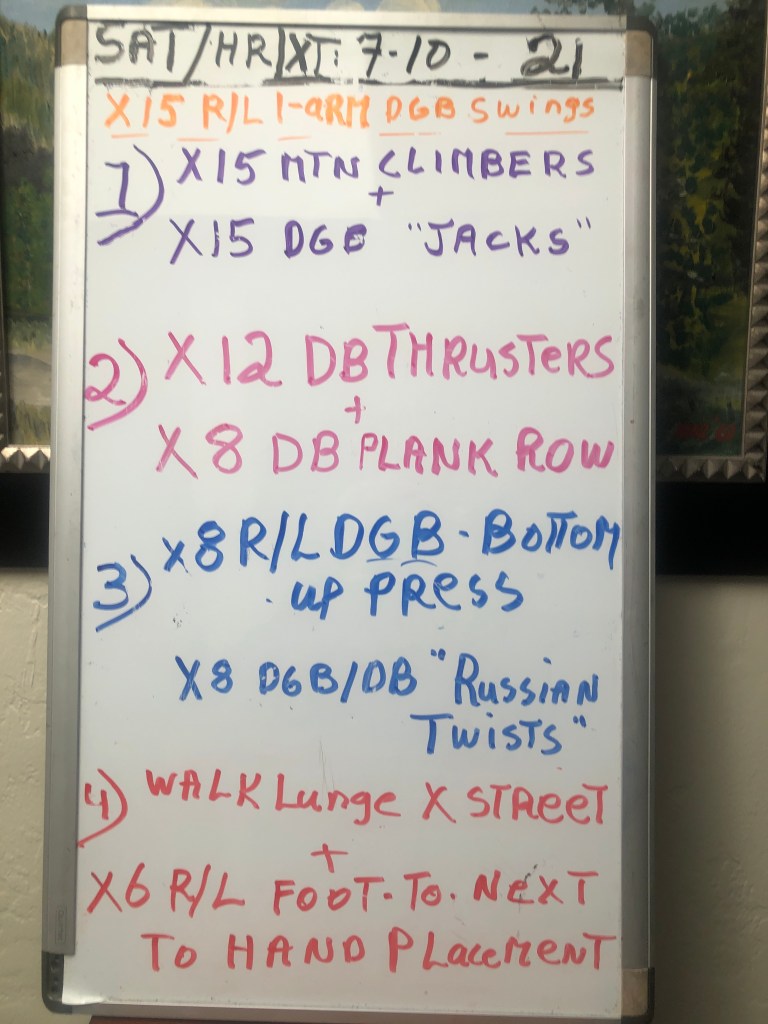 SAT/HR/XT: 7-10-21
X15 R/L 1-aRM DGB Swings
1) X15 MTN CLIMBERS
+
X15 DGB "JACKS"
2) X12 DB THRusTeRS
+
X8 DB PLANK ROW
3) x8 R/L DGB-BoTToM
up PRess
X8 DGB/DB "Russian
Twists"
4) WALK Lunge X STReeT
+
X6 R/L FOOT-To-NexT
To HAND PLaceMenT